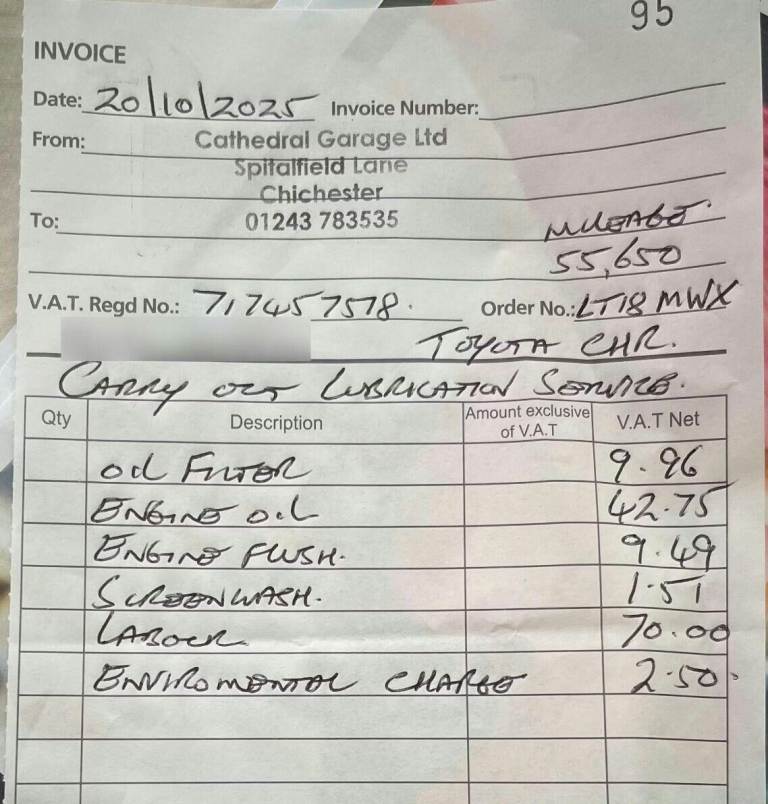 95
INVOICE
Date: 20/10/2025 Invoice Number:
From: Cathedral Garage Ltd
Spitalfield Lane
Chichester
To: 01243 783535
MILEAGE.
55,650
V.A.T. Regd No.: 717457578. Order No.: LT18 MWX
TOYOTA CHR.
CARRY OUT LUBRICATION SERVICE.
Qty Description Amount exclusive of V.A.T V.A.T Net
OIL FILTER 9.96
ENGINE OIL 42.75
ENGINE FLUSH. 9.49
SCREENWASH. 1.51
LABOUR 70.00
ENVIROMENTAL CHARGE 2.50.